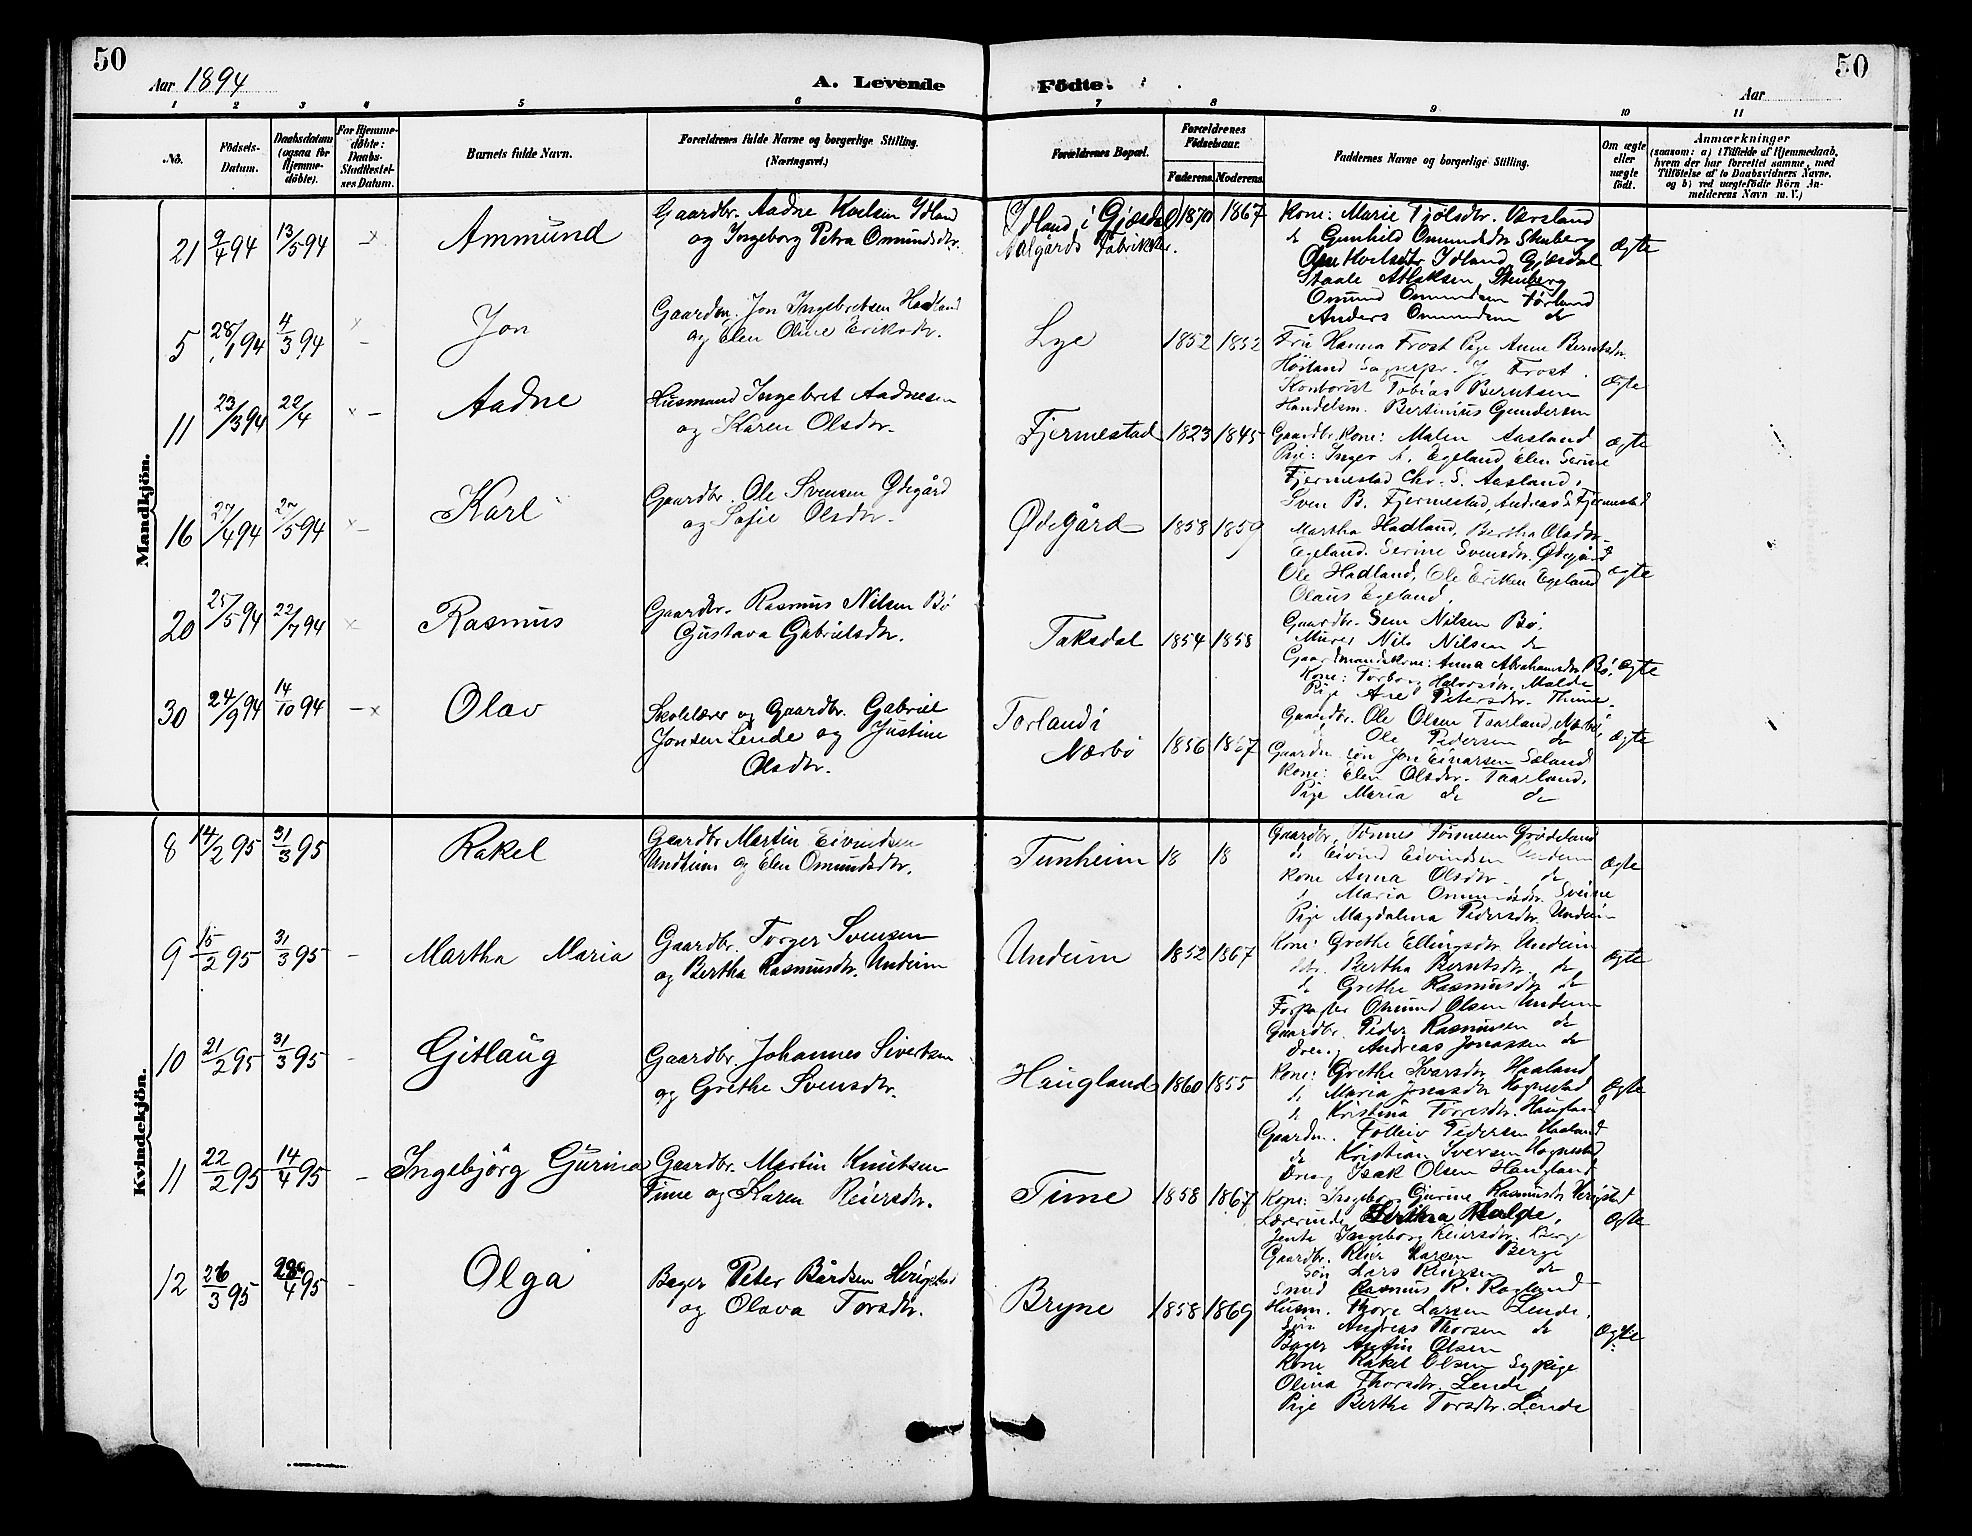 50
50
Aar 1894
A. Levende
Födte.
Aar
1 2 3 4 5 6 7 8 9 10 11
No.
Födsels-Datum.
Daabsdatum (ogsaa for Hjemme-döbte).
For Hjemme-döbte: Daabs-Stadfæstel-ses Datum.
Barnets fulde Navn.
Forældrenes fulde Navne og borgerlige Stilling. (Næringsvei.)
Forældrenes Bopæl.
Forældrenes Födselsaar.
Faderens. Moderens.
Faddernes Navne og borgerlige Stilling.
Om ægte eller uægte födt.
Anmærkninger
(saasom: a) i Tilfælde af Hjemmedaab, hvem der har forrettet samme, med Tilföielse af to Daabsvidners Navne, og b) ved uægtefödte Börn An-melderens Navn m. V.)
Mandkjön.
21 9/4 94 13/5 94 Ammund
Gaardbr. Aadne Koelsen Idland
og Ingeborg Petra Omundsdtr.
Idland i Gjæsdal
Aalgårds Fabrikker.
1870 1867
Kone: Marie Tjölsdtr.
do Gunhild Omundsdtr
Idland Gjæsdal
Staale Atlaksen
Omund Omundsen
Anders Omundsen do
Ægte
5 28/1 94 4/3 94 Jon
Gaardm. Jon Ingebretsen Hadland
og Elen Oline Eriksdr.
Lye
1852 1852
Fru Hanna Frost Pige Anne Berntsdr.
Höiland J. Frost
Kontorist Tobias Berntsen
Handelsm. Bertinius Gundersen
Ægte
11 23/3 94 22/4 Aadne
Husmand Ingebret Aadnesen
og Karen Olsdr.
Fjermestad
1823 1845
Gaardbr. Kone: Malen Aasland
Pige: Inger A. Egeland Elen Serine
Fjermestad Chr. S. Aasland,
Sven B. Fjermestad, Andreas S. Fjermestad
Ægte
16 27/4 94 27/5 94 Karl
Gaardbr. Ole Svensen Ødegård
og Sofie Olsdr.
Ødegård
1858 1859
Martha Hadland, Bertha Olsdr.
Egeland. Serine Svensdr. Ødegård
Ole Hadland, Ole Eriksen Egeland
Olaus Egeland.
Ægte
20 25/5 94 22/7 94 Rasmus
Gaardbr. Rasmus Nilsen Bö
Gustava Gabrielsdr.
Taksdal
1854 1858
Gaardbr. Nilsen Bö,
Murer Nils Nilsen do
Gaardmandskone: Anna Abrahamsdr. Bö,
Kone: Torborg Halvorsdr. Malde
Pige Ane Petersdr. Thime.
Ægte
30 24/9 94 14/10 94 Olav
Skolelærer og Gaardbr. Gabriel
Jonsen Lende og Justine
Olsdr.
Torland i
Nærbö
1856 1867
Gaardbr. Ole Olsen Taarland, Nærbö,
Ole Pedersen do
Gaardm. sön Jon Einarsen Söland
Kone: Elen Olsdr. Taarland,
Pige Maria do do
Ægte
Kvindekjön.
8 14/2 95 31/3 95 Rakel
Gaardbr Martin Eivindsen
Undheim og Elen Omundsdr.
Tunheim
18 18
Gaardbr. Grödeland
do Eivind Eivindsen
Kone Anna Olsdr. do
do Maria
Pige Magdalena Pedersdr. Undeim
Ægte
9 15/2 95 31/3 95 Martha Maria
Gaardbr. Torger Svensen
og Bertha Rasmusdr. Undeim
Undeim
1852 1867
Kone: Grethe Ellingsdtr Undeim
Bertha Berntsdr. do
do Grethe Rasmusdr do
Omund Olsen Undeim
Gaardbr. Peder Rasmusen do
Dreng Andreas Jonassen do
Ægte
10 21/2 95 31/3 95 Gitlaug
Gaardbr Johannes Sivertsen
og Grethe Svensdtr.
Haugland
1860 1855
Kone: Grethe Ivarsdr Haaland
do Maria Jonasdr Hognestad
do Kristina Torresdr. Haugland
Gaardm. Tolleiv Pedersen Haaland
do Kristian Iversen Hognestad
Dreng Isak Olsen Haugland
Ægte
11 22/2 95 14/4 95 Ingebjörg Gurina
Gaardbr. Martin Knutsen
Time og Karen Reiersdr.
Time
1858 1867
Kone: Ingeborg Gurine Rasmusdr Herigstad
Lærerinde Malde,
Jente Ingeborg Reiersdr. Berge
Gaardbr. Reier Larsen Berge
Sön Lars Reiersen do
Smed Rasmus R. Rogland
Ægte
12 26/3 95 28/4 95 Olga
Bager Peter Bårdsen Herigstad
og Olava Torsdr.
Bryne
1858 1869
Husm. Thore Larsen Lende,
Sön Andreas Thorsen do
Bager Olsen
Kone Rakel Olsen Sypige
Olina Thorsdr. Lende,
Pige Berthe Torsdr. Lende
Ægte